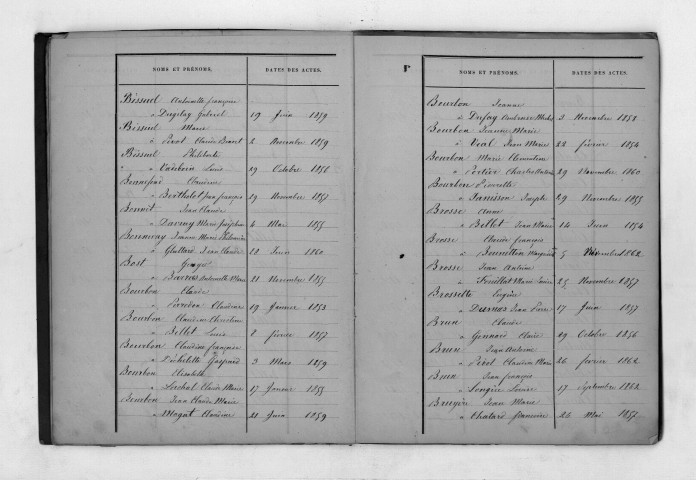 NOMS ET PRÉNOMS. DATES DES ACTES.
Bissuel Antoinette françoise
à Dugelay Gabriel 19 Juin 1859
Bissuel Marie
à Perot Claude Benoit 2 Novembre 1859
Bissuel Philiberte
à Louis 29 Octobre 1856
Claudine
à Berthelot Jean françois 19 Novembre 1857
Benoit Jean Claude
à Marie Joséphine 4 Mai 1855
Jeanne Marie Philomène
à Jean Claude 18 Juin 1860
Bost
à Antoinette Marie 21 Novembre 1855
Bourbon Claude
à Perrodon Claudine 19 Janvier 1853
Bourbon Claudine Christine
à Bellet Louis 8 février 1857
Bourbon Claudine françoise
à Déchelette Gaspard 3 Mars 1859
Bourbon Elisabeth
à Lachal Claude Marie 17 Janvier 1855
Bourbon Jean Claude Marie
à Magat Claudine 21 Juin 1859
NOMS ET PRÉNOMS. DATES DES ACTES.
Bourbon Jeanne
à Dufay 3 Novembre 1858
Bourbon Jeanne Marie
à Vial Jean Marie 22 février 1854
Bourbon Marie Clementine
à Portier Charles 29 Novembre 1860
Bourbon Pierrette
à Janisson Joseph 29 Novembre 1855
Brosse Anne
à Bellet Jean Marie 14 Juin 1854
Brosse Claude françois
à Marguerite 5 Novembre 1862
Brosse Jean Antoine
à Fouillet Marie Louise 25 Novembre 1857
Brossette Eugène
à Durnas Jean Pierre 17 Juin 1857
Brun Claude
à Gonnard Claire 29 Octobre 1856
Brun Jean Antoine
à Perot Claudine Marie 26 février 1862
Brun Jean françois
à Longère Louise 17 Septembre 1862
Bruyère Jean Marie
à Chatard françoise 26 Mai 1857